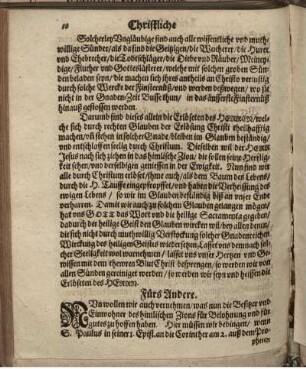 10 Christliche
Solcherley Ungläubige sind auch alle wissentliche vnd muth-
willige Sünder/ als da sind die Geitzigen/ die Wucherer/ die Hurer
vnd Ehebrecher/ die Todtschläger/ die Diebe vnd Räuber/ Meiney-
dige/ Flucher vnd Gottslästerer/ welche mit solchen groben Sün-
den beladen seyn/ die machen sich ihres antheils an Christo verlustig
durch solche Wercke der Finsternüß/ vnd werden deßwegen/ wo sie
nicht in der Gnaden-Zeit Busse thun/ in das äusserste Finsternüß
hinauß gestossen werden.
Darumb sind dieses allein die Erlöseten des HERRN/ wel-
che sich durch rechten Glauben der Erlösung Christi theilhafftig
machen/ in solchem Glauben beständig/
vnd entschlaffen seelig durch Christum. Dieselben wil der HErr
Jesus nach sich ziehen in das himlische Zion/ die sollen seine Herrlig-
keit sehen/ vnd derselbigen geniessen in der Ewigkeit. Nun sind wir
alle durch Christum erlöst/ als dem Baum des Lebens/
durch die H. Tauffe eingepfropffet/ vnd haben die Verheissung des
ewigen Lebens/ so wir im Glauben beständig biß an vnser Ende
verharren. Damit wir auch zu solchem Glauben gelangen mögen/
hat vns GOTT das Wort vnd die heilige Sacramenta gegeben/
dadurch der heilige Geist den Glauben wircken wil bey allen denen/
die sich nicht durch muthwillig Verstockung solcher Gnadenreichen
Wirckung des heiligen Geistes widersetzen. Lasset vns demnach sol-
cher Seeligkeit wol warnehmen/ lasset vns vnser Hertzen vnd Ge-
wissen mit dem thewren Blut Christi besprengen/ so werden wir von
allen Sünden gereiniget werden/ so werden wir seyn vnd heissen die
Erlöseten des HERRN.
Fürs Andere.
NU wollen wir auch vernehmen/ was nun die Besitzer vnd
Einwohner des himlischen Zions für Belohnung vnd für
gutes zu hoffen haben. Hier müssen wir bedingen/ wenn
S. Paulus in seiner 1. Epist. an die Corinther am 2. auß dem Pro-
pheten